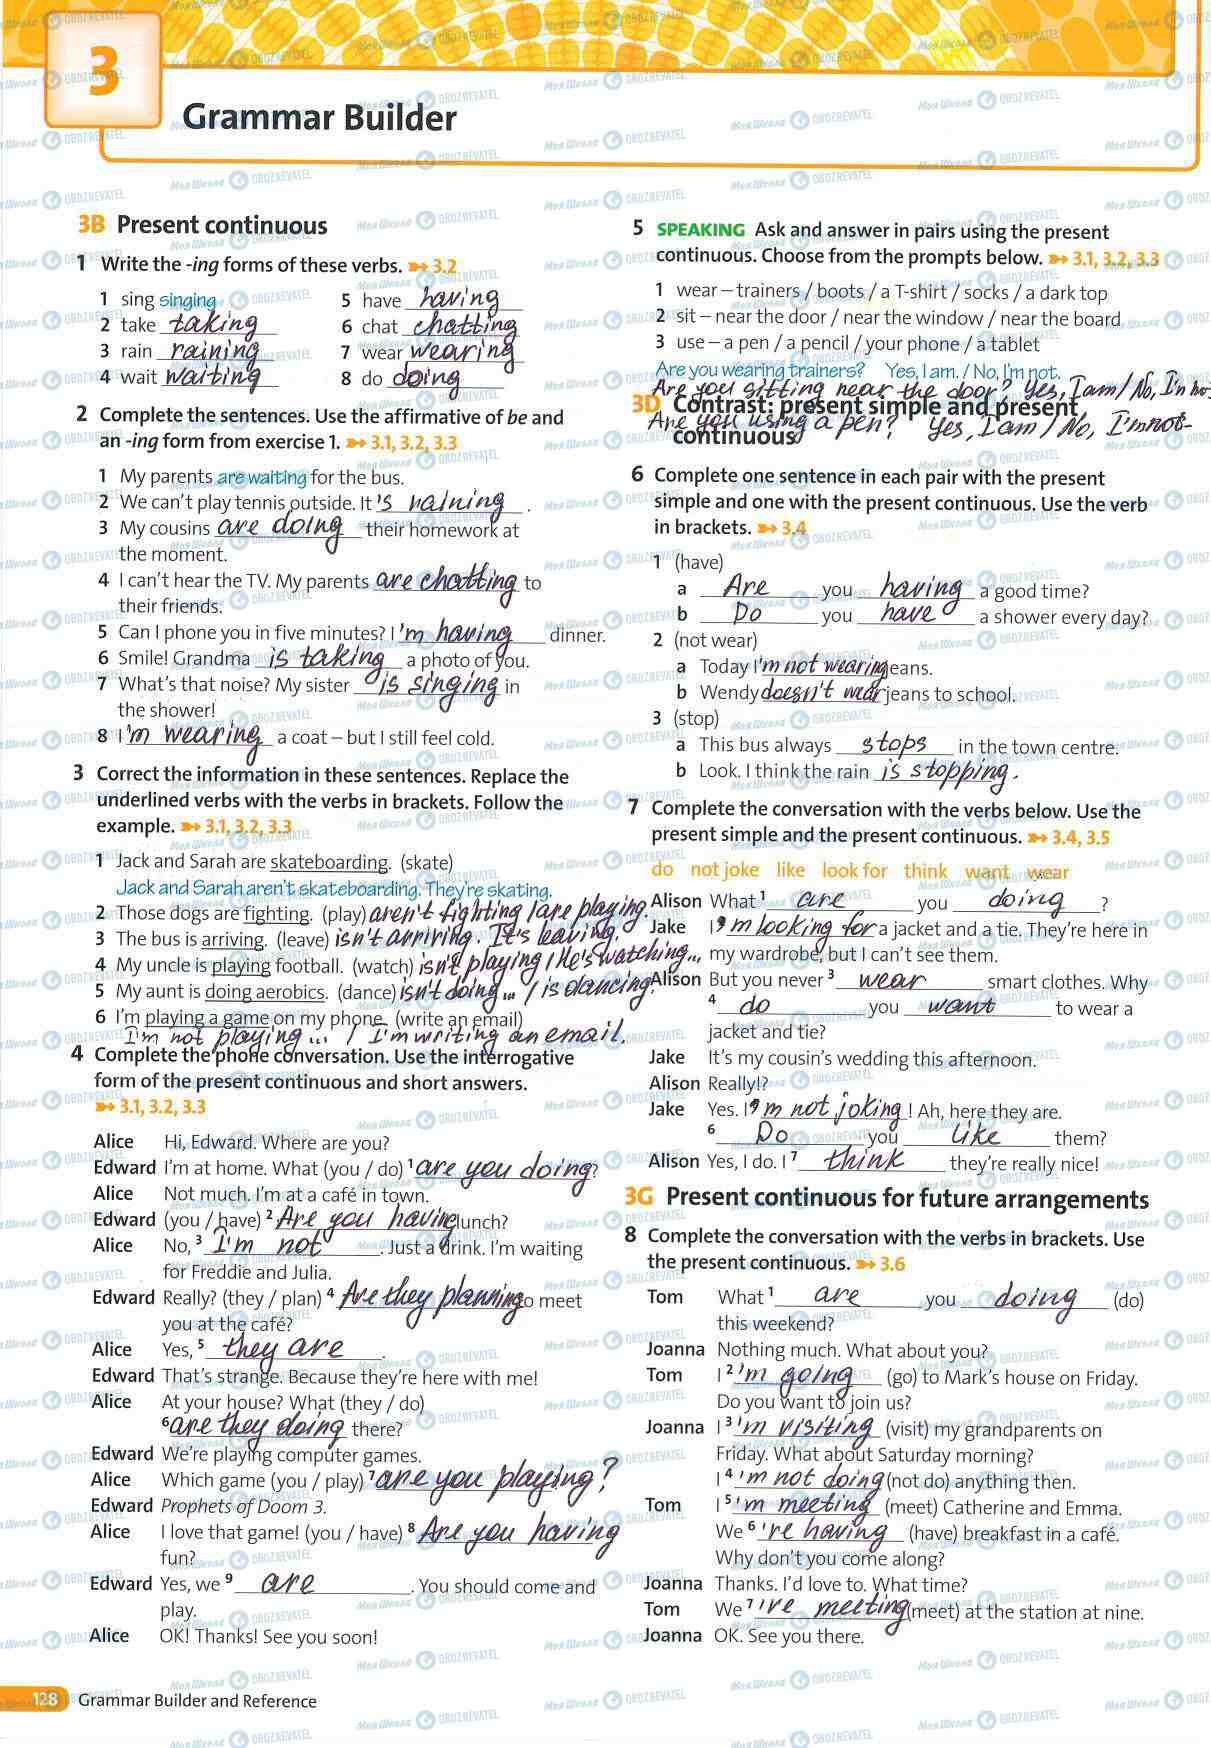 3
Grammar Builder
3B Present continuous
1 Write the -ing forms of these verbs. ➼ 3.2
1 sing singing
2 take taking
3 rain raining
4 wait waiting
5 have having
6 chat chatting
7 wear wearing
8 do doing
2 Complete the sentences. Use the affirmative of be and
an -ing form from exercise 1. ➼ 3.1, 3.2, 3.3
1 My parents are waiting for the bus.
2 We can't play tennis outside. It 's raining .
3 My cousins are doing their homework at
the moment.
4 I can't hear the TV. My parents are chatting to
their friends.
5 Can I phone you in five minutes? I 'm having dinner.
6 Smile! Grandma is taking a photo of you.
7 What's that noise? My sister is singing in
the shower!
8 I 'm wearing a coat – but I still feel cold.
3 Correct the information in these sentences. Replace the
underlined verbs with the verbs in brackets. Follow the
example. ➼ 3.1, 3.2, 3.3
1 Jack and Sarah are skateboarding. (skate)
Jack and Sarah aren't skateboarding. They're skating.
2 Those dogs are fighting. (play) aren't fighting / are playing.
3 The bus is arriving. (leave) isn't arriving. It's leaving.
4 My uncle is playing football. (watch) isn't playing / He's watching...
5 My aunt is doing aerobics. (dance) isn't doing... / is dancing.
6 I'm playing a game on my phone. (write an email)
I'm not playing... / I'm writing an email.
4 Complete the phone conversation. Use the interrogative
form of the present continuous and short answers.
➼ 3.1, 3.2, 3.3
Alice Hi, Edward. Where are you?
Edward I'm at home. What (you / do) 1 are you doing ?
Alice Not much. I'm at a café in town.
Edward (you / have) 2 Are you having lunch?
Alice No, 3 I'm not . Just a drink. I'm waiting
for Freddie and Julia.
Edward Really? (they / plan) 4 Are they planning to meet
you at the café?
Alice Yes, 5 they are .
Edward That's strange. Because they're here with me!
Alice At your house? What (they / do)
6 are they doing there?
Edward We're playing computer games.
Alice Which game (you / play) 7 are you playing?
Edward Prophets of Doom 3.
Alice I love that game! (you / have) 8 Are you having
fun?
Edward Yes, we 9 are . You should come and
play.
Alice OK! Thanks! See you soon!
5 SPEAKING Ask and answer in pairs using the present
continuous. Choose from the prompts below. ➼ 3.1, 3.2, 3.3
1 wear – trainers / boots / a T-shirt / socks / a dark top
2 sit – near the door / near the window / near the board
3 use – a pen / a pencil / your phone / a tablet
Are you wearing trainers? Yes, I am. / No, I'm not.
Are you sitting near the door? Yes, I am / No, I'm no
3D Contrast: present simple and present
Are you using a pen? Yes, I am / No, I'm not
continuous
6 Complete one sentence in each pair with the present
simple and one with the present continuous. Use the verb
in brackets. ➼ 3.4
1 (have)
a Are you having a good time?
b Do you have a shower every day?
2 (not wear)
a Today I 'm not wearing jeans.
b Wendy doesn't wear jeans to school.
3 (stop)
a This bus always stops in the town centre.
b Look. I think the rain is stopping .
7 Complete the conversation with the verbs below. Use the
present simple and the present continuous. ➼ 3.4, 3.5
do not joke like look for think want wear
Alison What 1 are you doing ?
Jake I 2 'm looking for a jacket and a tie. They're here in
my wardrobe, but I can't see them.
Alison But you never 3 wear smart clothes. Why
4 do you want to wear a
jacket and tie?
Jake It's my cousin's wedding this afternoon.
Alison Really!?
Jake Yes. I 5 'm not joking ! Ah, here they are.
6 Do you like them?
Alison Yes, I do. I 7 think they're really nice!
3G Present continuous for future arrangements
8 Complete the conversation with the verbs in brackets. Use
the present continuous. ➼ 3.6
Tom What 1 are you doing (do)
this weekend?
Joanna Nothing much. What about you?
Tom I 2 'm going (go) to Mark's house on Friday.
Do you want to join us?
Joanna I 3 'm visiting (visit) my grandparents on
Friday. What about Saturday morning?
I 4 'm not doing (not do) anything then.
Tom I 5 'm meeting (meet) Catherine and Emma.
We 6 're having (have) breakfast in a café.
Why don't you come along?
Joanna Thanks. I'd love to. What time?
Tom We 7 're meeting (meet) at the station at nine.
Joanna OK. See you there.
128 Grammar Builder and Reference